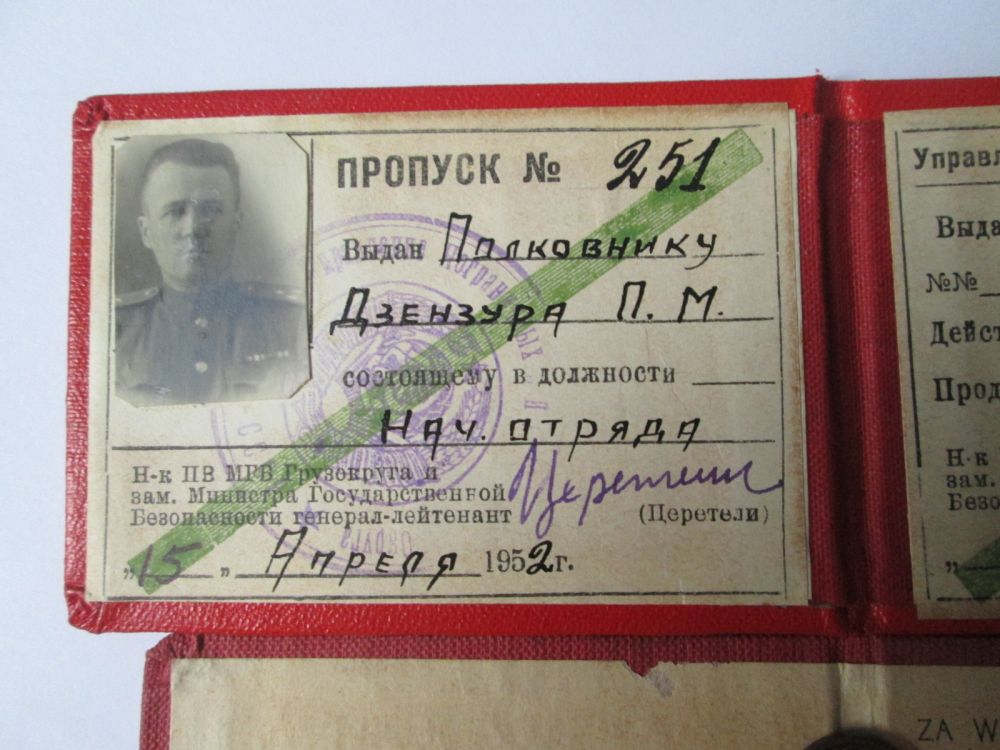 ПРОПУСК № 251
Выдан Полковнику
Дзензура П. М.
состоящему в должности
Нач. отряда
Н-к ПВ МГБ Грузокруга и
зам. Министра Государственной
Безопасности генерал-лейтенант
Церетели (Церетели)
„15 „ Апреля 1952г.
Управл
Выда
№№
Дейст
Прод
Н-к
зам.
Безо
„
ZA W